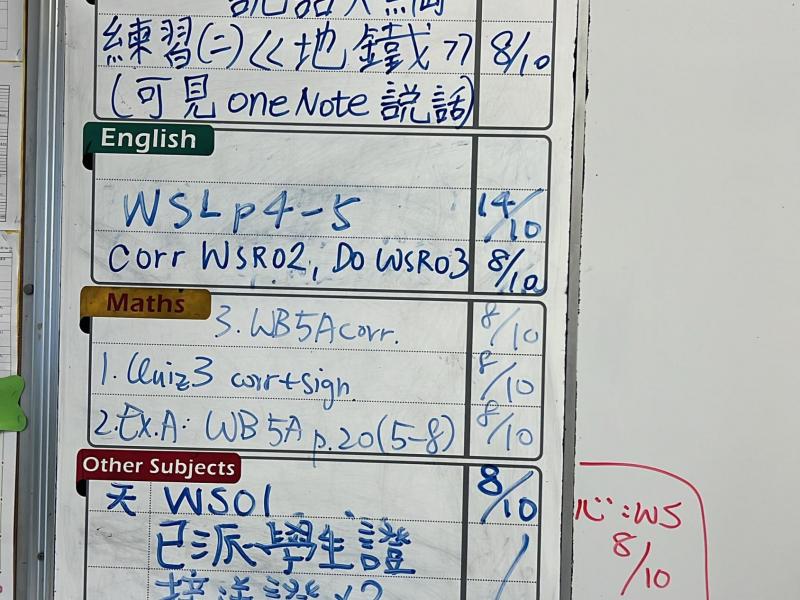 練習(二)《地鐵》 8/10
(可見 oneNote 說話)
English
WSL p4-5 14/10
Corr WSR02, Do WSR03 8/10
Maths
3. WB5A corr. 8/10
1. Quiz3 corr+sign 8/10
2. Ex.A: WB 5A p.20(5-8) 8/10
Other Subjects
天 WS01 8/10
已派學生證 /
心:WS
8/10